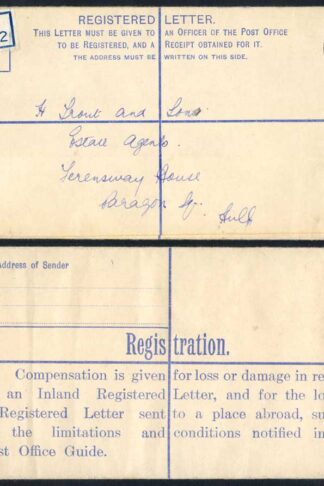 2
REGISTERED LETTER.
THIS LETTER MUST BE GIVEN TO AN OFFICER OF THE POST OFFICE
TO BE REGISTERED, AND A RECEIPT OBTAINED FOR IT.
THE ADDRESS MUST BE WRITTEN ON THIS SIDE.
H Trout and Sons
Estate Agents.
House
Paragon Sq.
Hull
Address of Sender
Registration.
Compensation is given for loss or damage in re
an Inland Registered Letter, and for the lo
Registered Letter sent to a place abroad, su
the limitations and conditions notified in
st Office Guide.